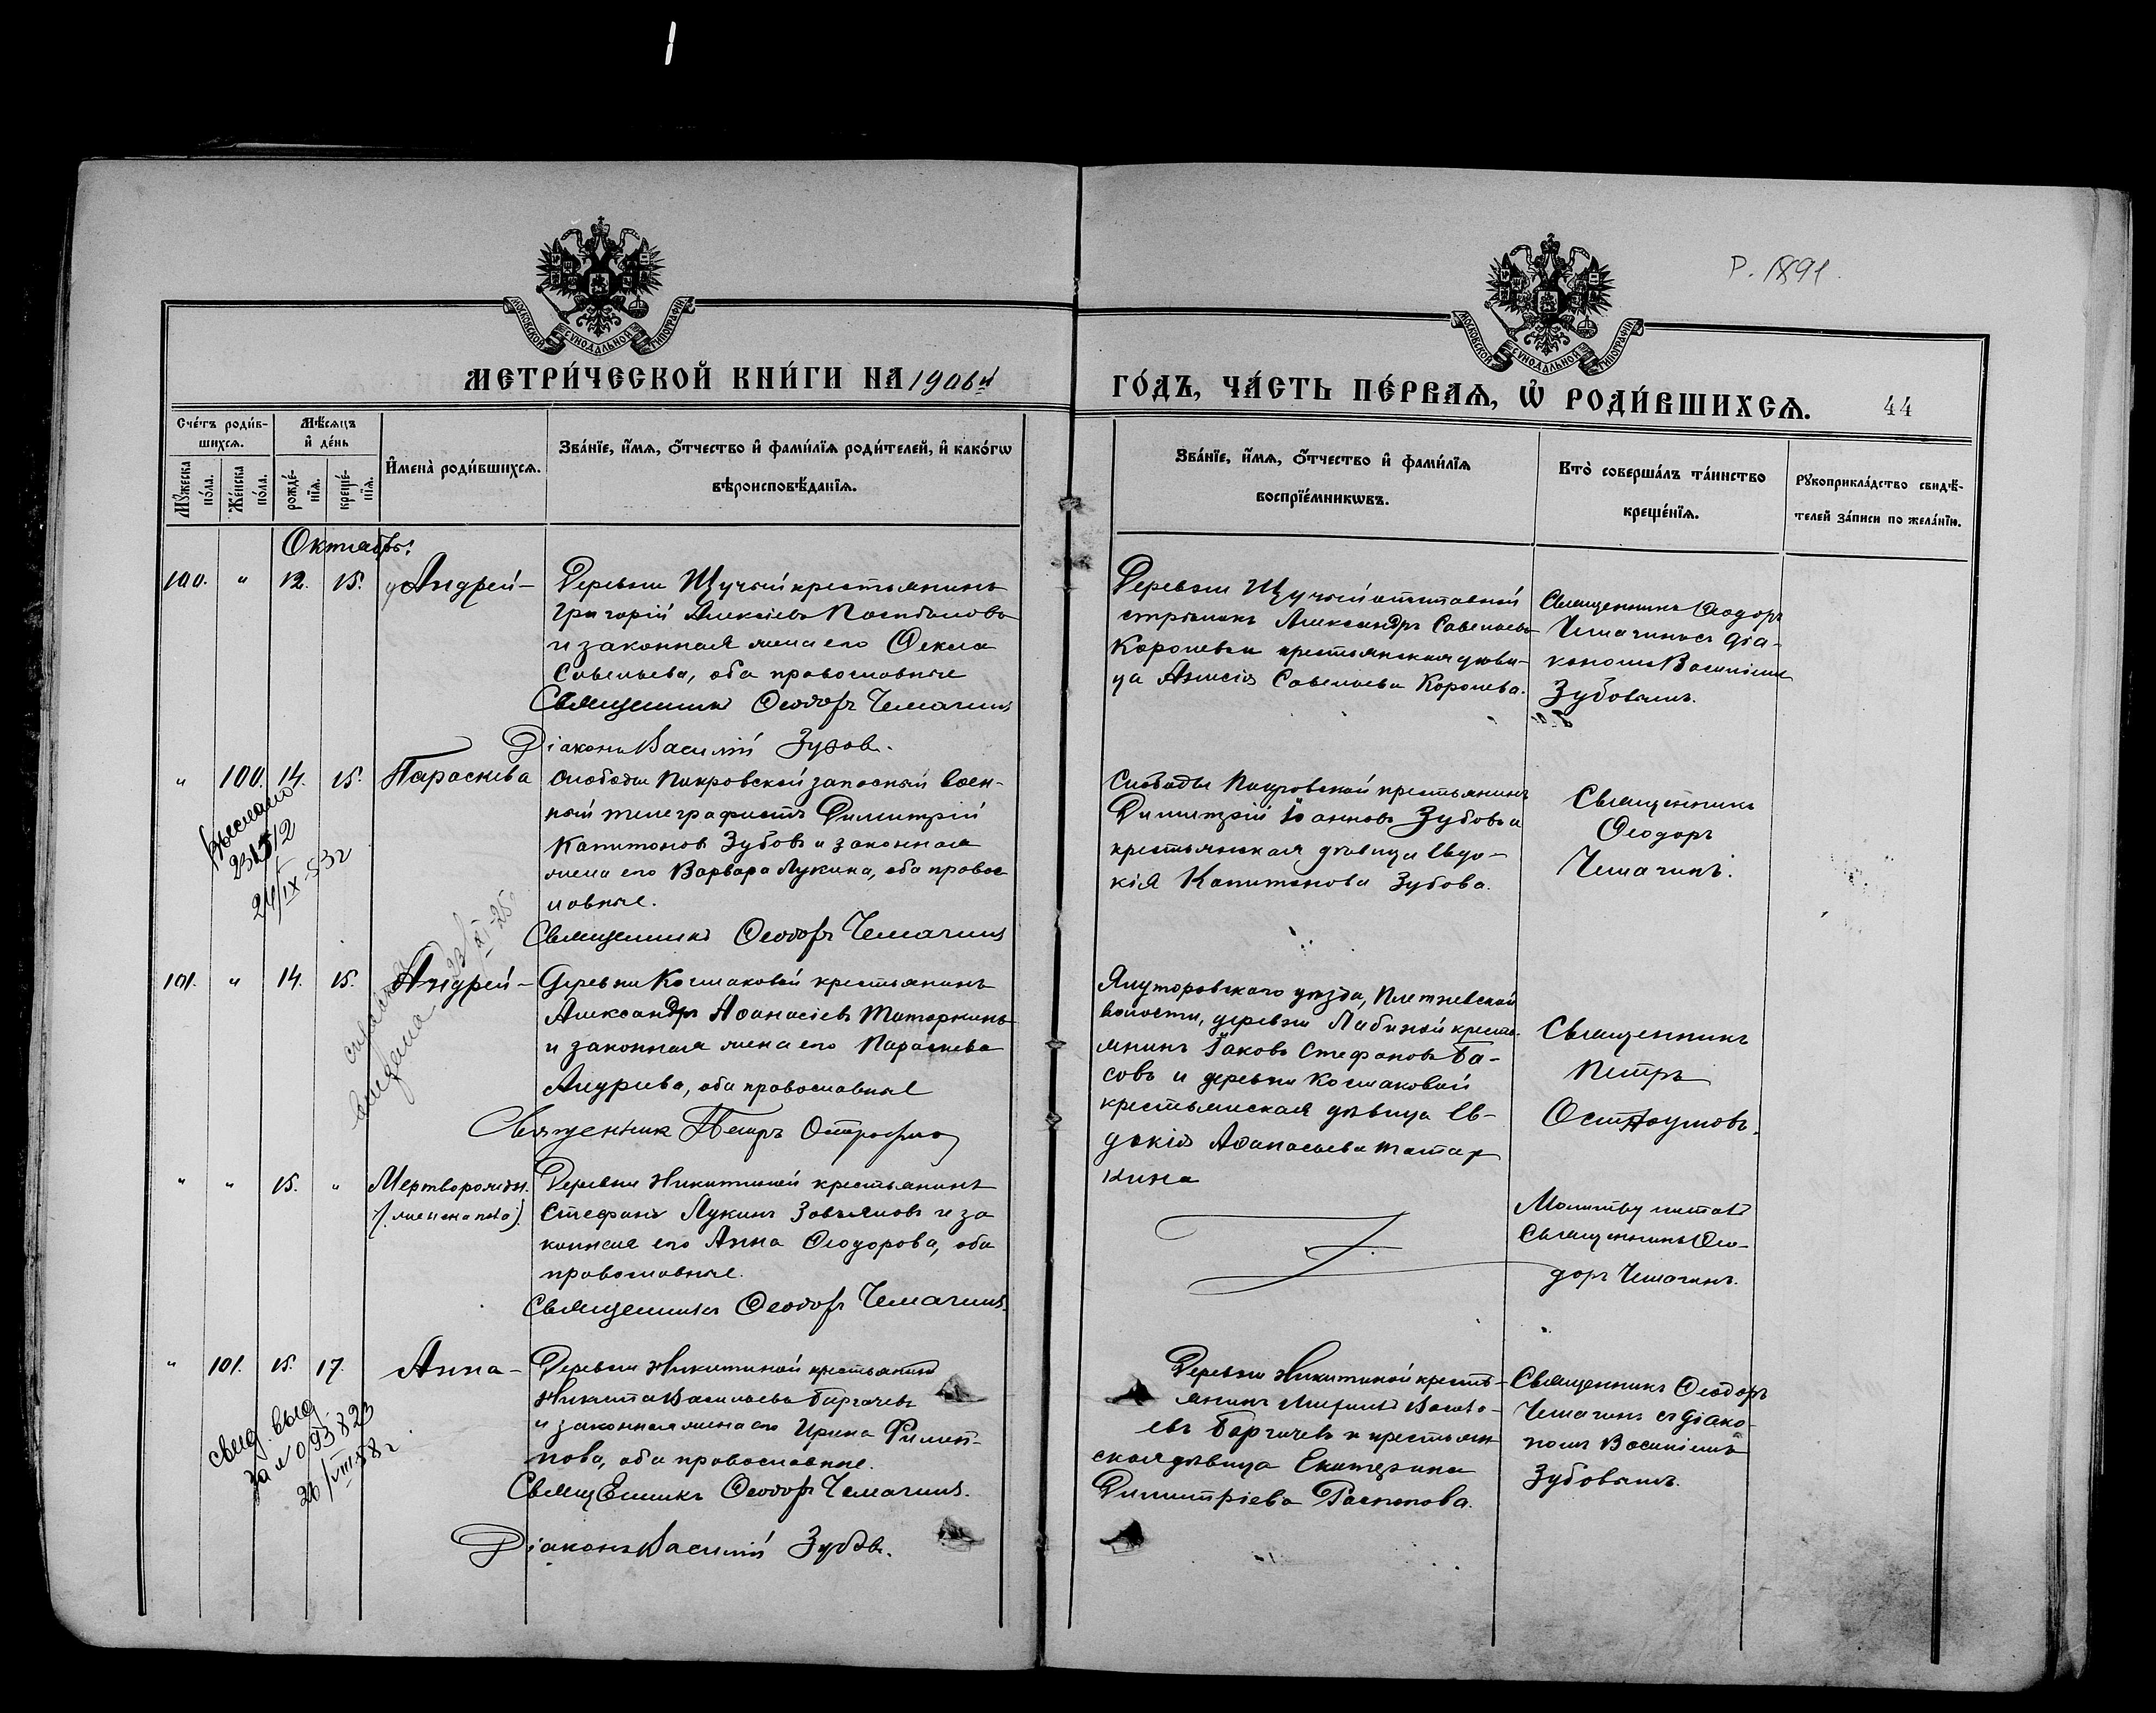 Р. 1891.
МОСКОВСКОЙ СѴНОДАЛЬНОЙ ТИПОГРАФІИ
МОСКОВСКОЙ СѴНОДАЛЬНОЙ ТИПОГРАФІИ
МЕТРИ́ЧЕСКОЙ КНИ́ГИ НА 1906й
ГО́ДЪ, ЧА́СТЬ ПЕ́РВАѦ, Ѡ҆ РОДИ́ВШИХСѦ.
44
Сче́тъ роди́в-
шихсѧ.
Мꙋ́жеска
по́ла.
Же́нска
по́ла.
Мѣ́сѧцъ
и҆ де́нь
рожде́-
нїѧ.
креще́-
нїѧ.
И҆мена̀ роди́вшихсѧ.
Зва́нїе, и҆́мѧ, о҆́тчество и҆ фами́лїѧ роди́телей, и҆ како́гѡ
вѣроисповѣ́данїѧ.
Зва́нїе, и҆́мѧ, о҆́тчество и҆ фами́лїѧ
воспрїе́мникѡвъ.
Кто̀ соверша́лъ та́инство
креще́нїѧ.
Рꙋкоприкла́дство свидѣ́-
телей за́писи по жела́нїю.
Октябрь:
100. " 12. 15. Андрей
Деревни Щучьей крестьянинъ
Григорій Алексіевъ
и законная жена его Ѳекла
Савельева, оба православные
Священникъ Ѳеодоръ Чемагинъ
Діаконъ Василій Зубовъ.
Деревни Щучьей отставной
стрѣлокъ Александръ Савельевъ
Королевъ и крестьянская дѣви-
ца Анисія Савельева Королева.
Священникъ Ѳеодоръ
Чемагинъ съ діа-
кономъ Василіемъ
Зубовымъ.
" 100. 14. 15. Параскева
Выслано
24/IX-53г
Слободы Покровской запасный воен-
ный телеграфистъ Димитрій
Капитоновъ Зубовъ и законная
жена его Варвара Лукина, оба правос
лавные.
Священникъ Ѳеодоръ Чемагинъ
Слободы Покровской крестьянинъ
Димитрій Іоанновъ Зубовъ и
крестьянская дѣвица Евдо-
кія Капитонова Зубова.
Священникъ
Ѳеодоръ
Чемагинъ.
101. " 14. 15. Андрей
Деревни Космаковой крестьянинъ
Александръ Аѳанасіевъ Татаркинъ
и законная жена его Параскева
Андреева, оба православные
Священникъ Петръ Остроумовъ
Ялуторовскаго уѣзда, Плетневской
волости, деревни Лабиной кресть
янинъ Іаковъ Стефановъ Ба-
совъ и деревни Космаковой
крестьянская дѣвица Ев-
докія Аѳанасьева Татар
кина
Священникъ
Петръ
Остроумовъ.
" " 15. " Мертворожден.
(женска пола).
Деревни Никитиной крестьянинъ
Стефанъ Лукинъ Завьяловъ и за
конная его Анна Ѳеодорова, оба
православные.
Священникъ Ѳеодоръ Чемагинъ.
Молитву читалъ
Священникъ Ѳео-
доръ Чемагинъ.
" 101. 15. 17. Анна
свид. выд.
за № 093823
26/VIII 58г.
Деревни Никитиной крестьянинъ
Никита Васильевъ Баргачевъ
и законная жена его Ирина Филип-
пова, оба православные.
Священникъ Ѳеодоръ Чемагинъ.
Діаконъ Василій Зубовъ.
Деревни Никитиной кресть-
янинъ Василь-
евъ Баргачевъ и крестьян
ская дѣвица Екатерина
Димитріева Распопова.
Священникъ Ѳеодоръ
Чемагинъ съ діако-
номъ Василіемъ
Зубовымъ.